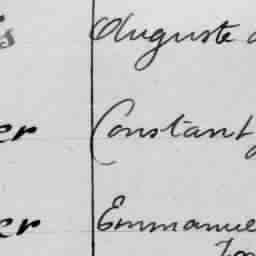 Auguste
er Constant
er Emmanuel